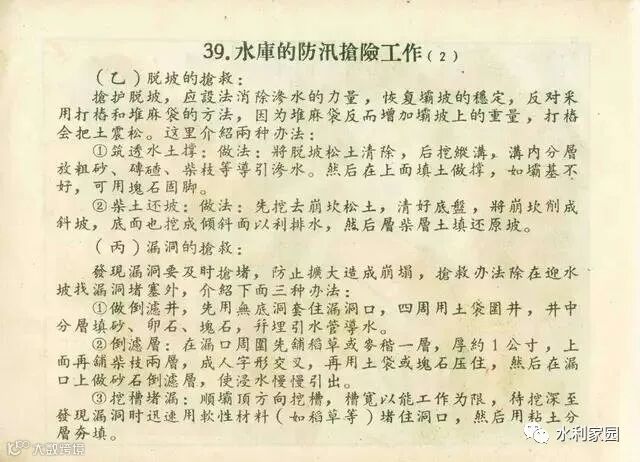 39.水庫的防汛搶險工作(2)
(乙)脱坡的搶救:
搶护脱坡,应設法消除滲水的力量,恢复壩坡的穩定,反对采
用打樁和堆麻袋的方法,因为堆麻袋反而增加壩坡上的重量,打樁
会把土震松。这里介紹兩种办法:
①筑透水土撑:做法:將脱坡松土清除,后挖縱溝,溝内分層
放粗砂、碑碴、柴枝等導引滲水。然后在上面填土做撑,如壩基不
好,可用塊石固脚。
②柴土还坡:做法:先挖去崩坎松土,清好底盤,將崩坎削成
斜坡,底面也挖成傾斜面以利排水,然后層柴層土填还原坡。
(丙)漏洞的搶救:
發現漏洞要及时搶堵,防止擴大造成崩塌,搶救办法除在迎水
坡找漏洞堵塞外,介紹下面三种办法:
①做倒濾井,先用無底洞套住漏洞口,四周用土袋圍井,井中
分層填砂、卵石、塊石,幷埋引水管導水。
②倒濾層:在漏口周圍先舖稻草或麥稭一層,厚約1公寸,上
面再舖柴枝兩層,成人字形交叉,再用土袋或塊石压住,然后在漏
口上做砂石倒濾層,使浸水慢慢引出。
③挖槽堵漏:順壩頂方向挖槽,槽寬以能工作为限,待挖深至
發現漏洞时迅速用軟性材料(如稻草等)堵住洞口,然后用粘土分
層夯填。
大数跨境
水利家园